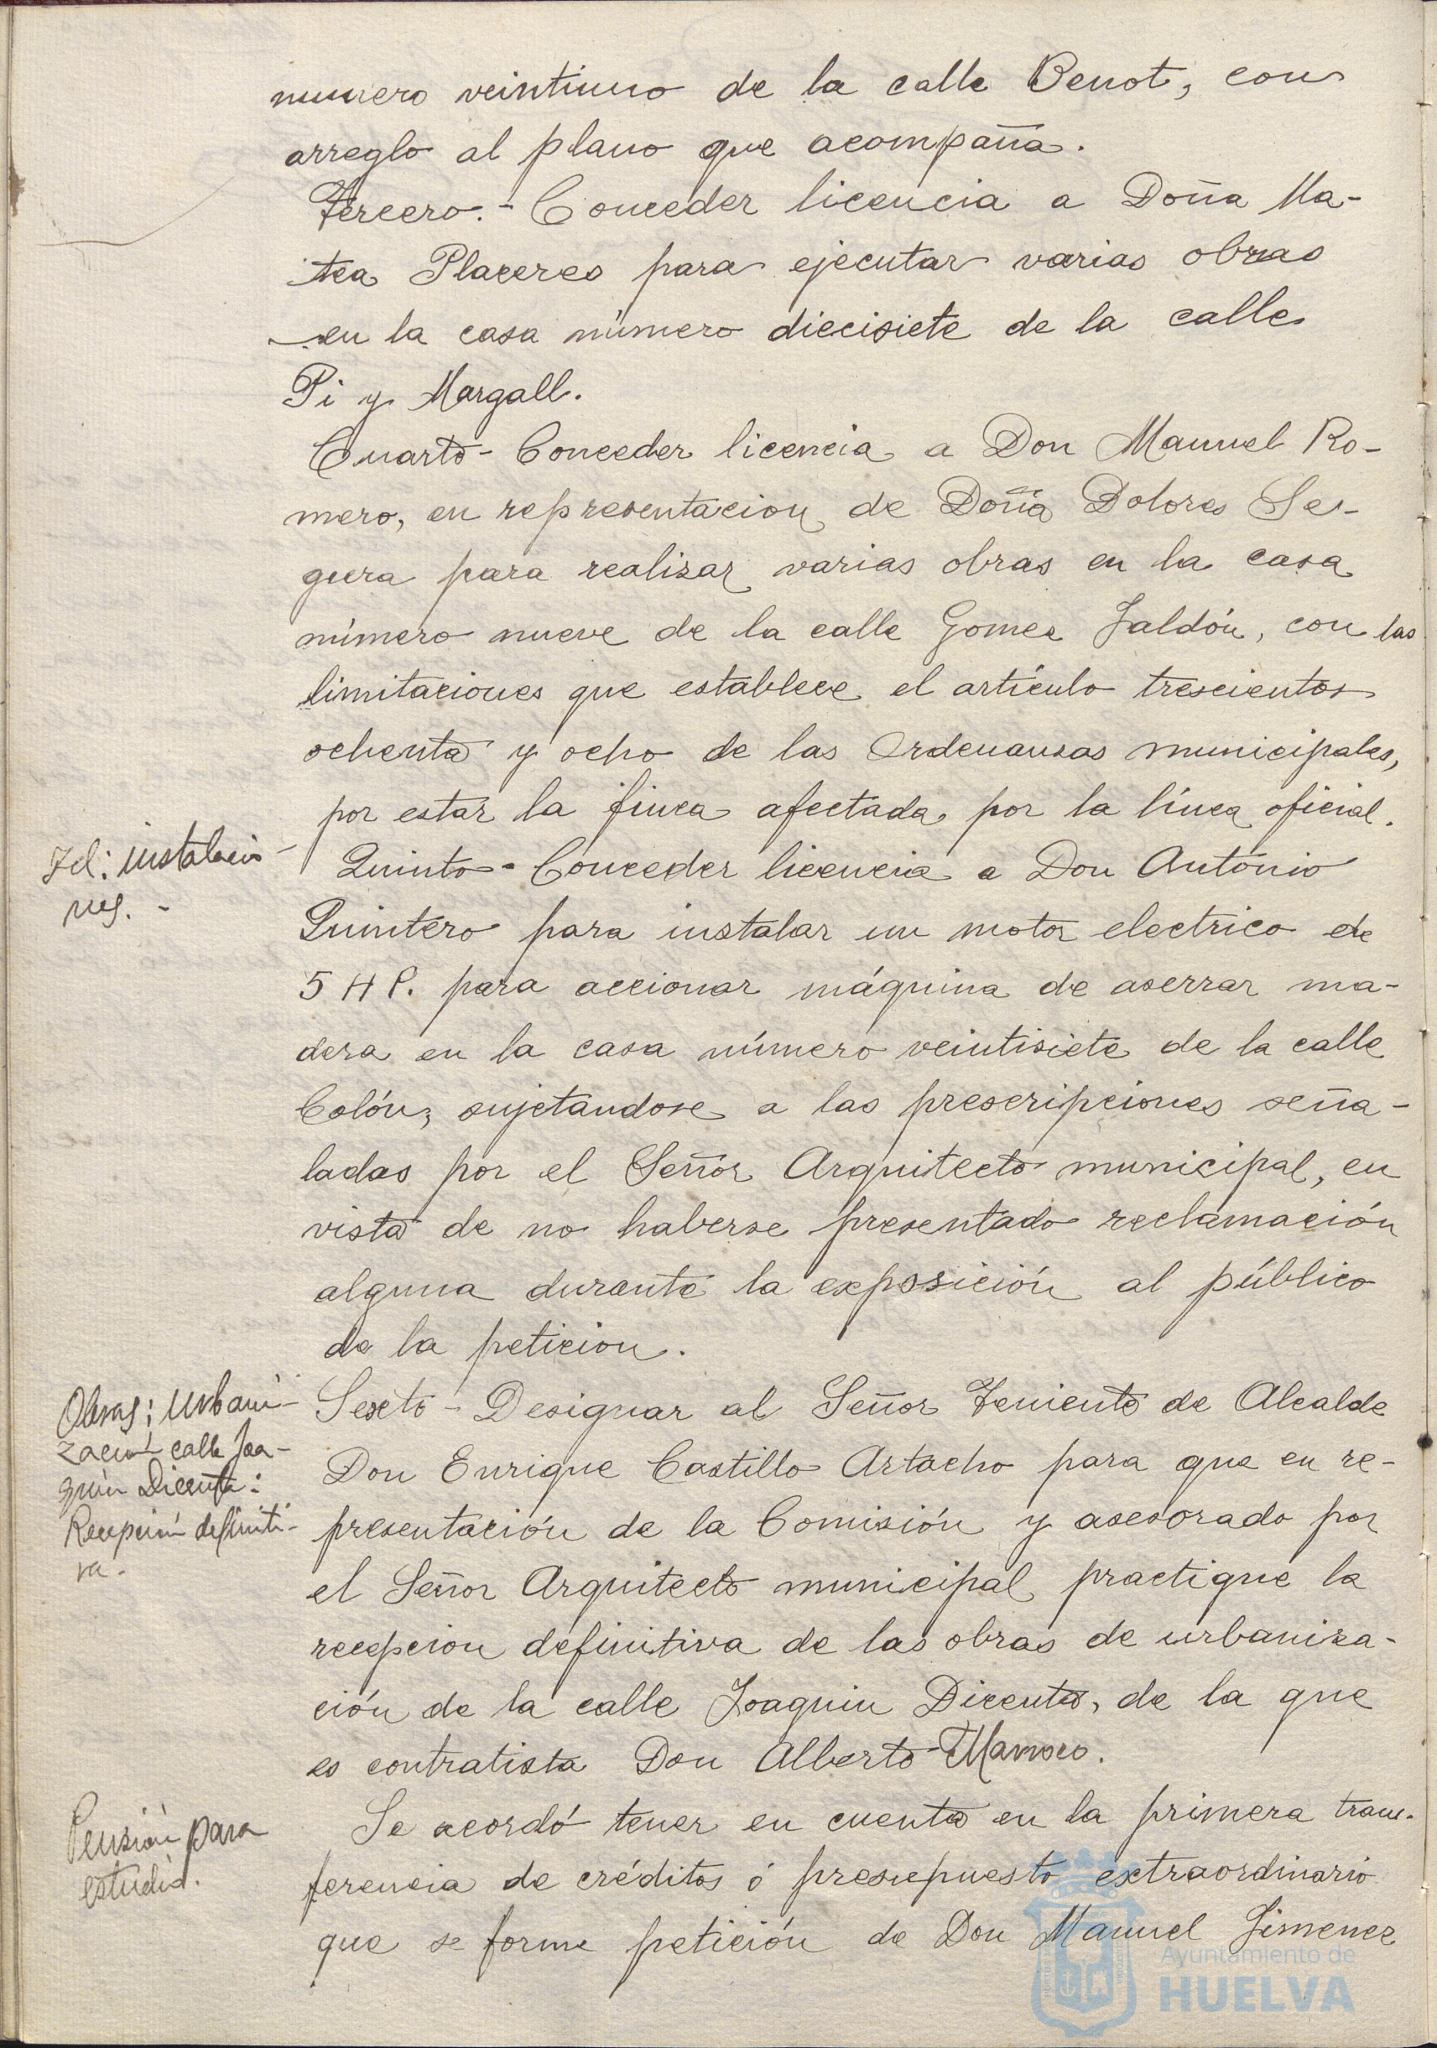 numero veintiuno de la calle Benot, con
arreglo al plano que acompaña.
Tercero.- Conceder licencia a Doña Ma-
tea Placeres para ejecutar varias obras
en la casa número diecisiete de la calle
Pi y Margall.
Cuarto- Conceder licencia a Don Manuel Ro-
mero, en representacion de Doña Dolores Se-
gura para realizar varias obras en la casa
número nueve de la calle Gomez Jaldón, con las
limitaciones que establece el artículo trescientos
ochenta y ocho de las Ordenanzas municipales,
por estar la finca afectada por la línea oficial.
Id: instalacio-
nes.-
Quinto- Conceder licencia a Don Antonio
Quintero para instalar un motor electrico de
5 HP. para accionar máquina de aserrar ma-
dera en la casa número veintisiete de la calle
Colón, sujetandose a las prescripciones seña-
ladas por el Señor Arquitecto municipal, en
vista de no haberse presentado reclamación
alguna durante la exposición al público
de la peticion.
Obras: urbani-
zación calle Joa-
quin Dicenta:
Recepción definiti-
va.
Sexto- Designar al Señor Teniente de Alcalde
Don Enrique Castillo Artacho para que en re-
presentación de la Comisión y asesorado por
el Señor Arquitecto municipal practique la
recepcion definitiva de las obras de urbaniza-
ción de la calle Joaquin Dicenta, de la que
es contratista Don Alberto
Pensión para
estudio.
Se acordó tener en cuenta en la primera trans-
ferencia de créditos ó presupuesto extraordinario
que se forme petición de Don Manuel Jimenez
Ayuntamiento de
HUELVA